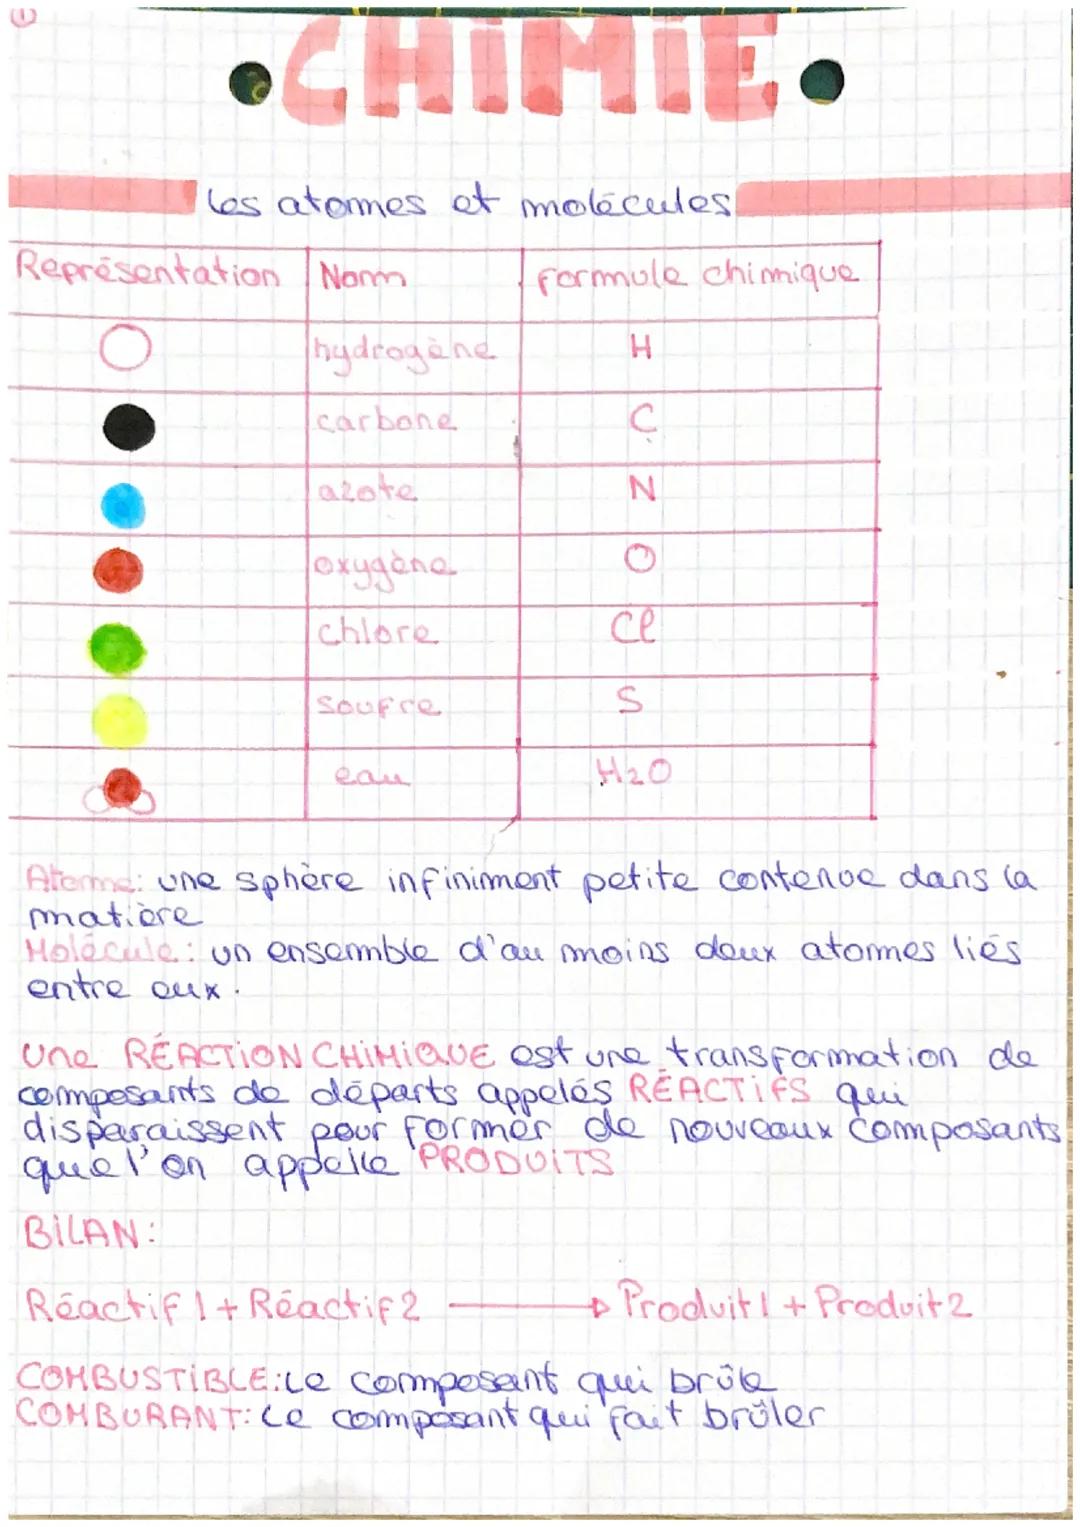 1
CHIMIE
Les atomes et molécules
Représentation Nom formule chimique
hydrogène H
carbone C
azote N
oxygène O
chlore Cl
soufre S
eau H2O
Atome: une sphère infiniment petite contenue dans la
matière
Molécule: un ensemble d'au moins deux atomes liés
entre eux.
Une RÉACTION CHIMIQUE est une transformation de
composants de départs appelés RÉACTIFS qui
disparaissent pour former de nouveaux composants
que l'on appelle PRODUITS
BILAN:
Réactif 1 + Réactif 2 → Produit 1 + Produit 2
COMBUSTIBLE: Le composant qui brûle
COMBURANT: Le composant qui fait brûler